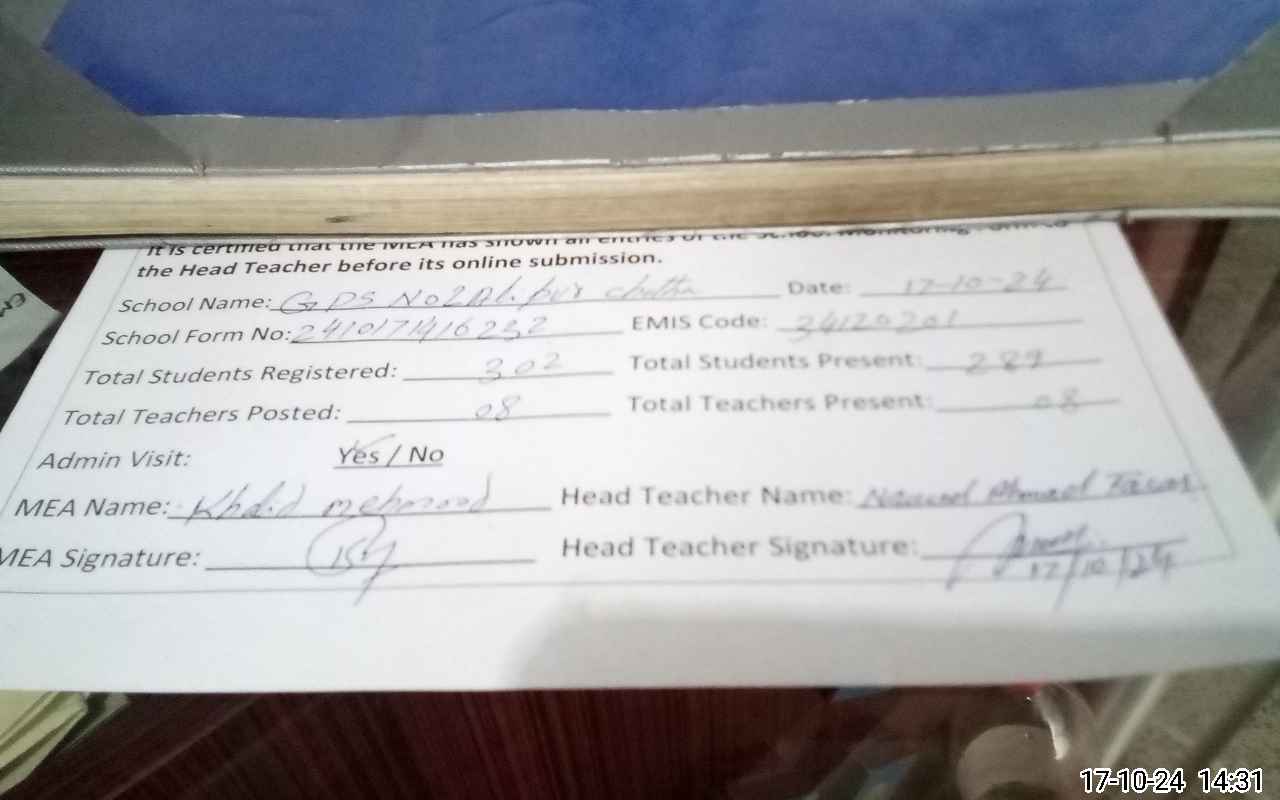 It is certified that the MEA has shown all entries of the School Monitoring Form to
the Head Teacher before its online submission.
School Name: GPS No2 Ali pur chatha Date: 17-10-24
School Form No: 241017141623 2 EMIS Code: 34120201
Total Students Registered: 302 Total Students Present: 289
Total Teachers Posted: 08 Total Teachers Present: 08
Admin Visit: Yes / No
MEA Name: Khalid mehmood Head Teacher Name: Ahmad
MEA Signature: Head Teacher Signature:
17/10/24
17-10-24 14:31